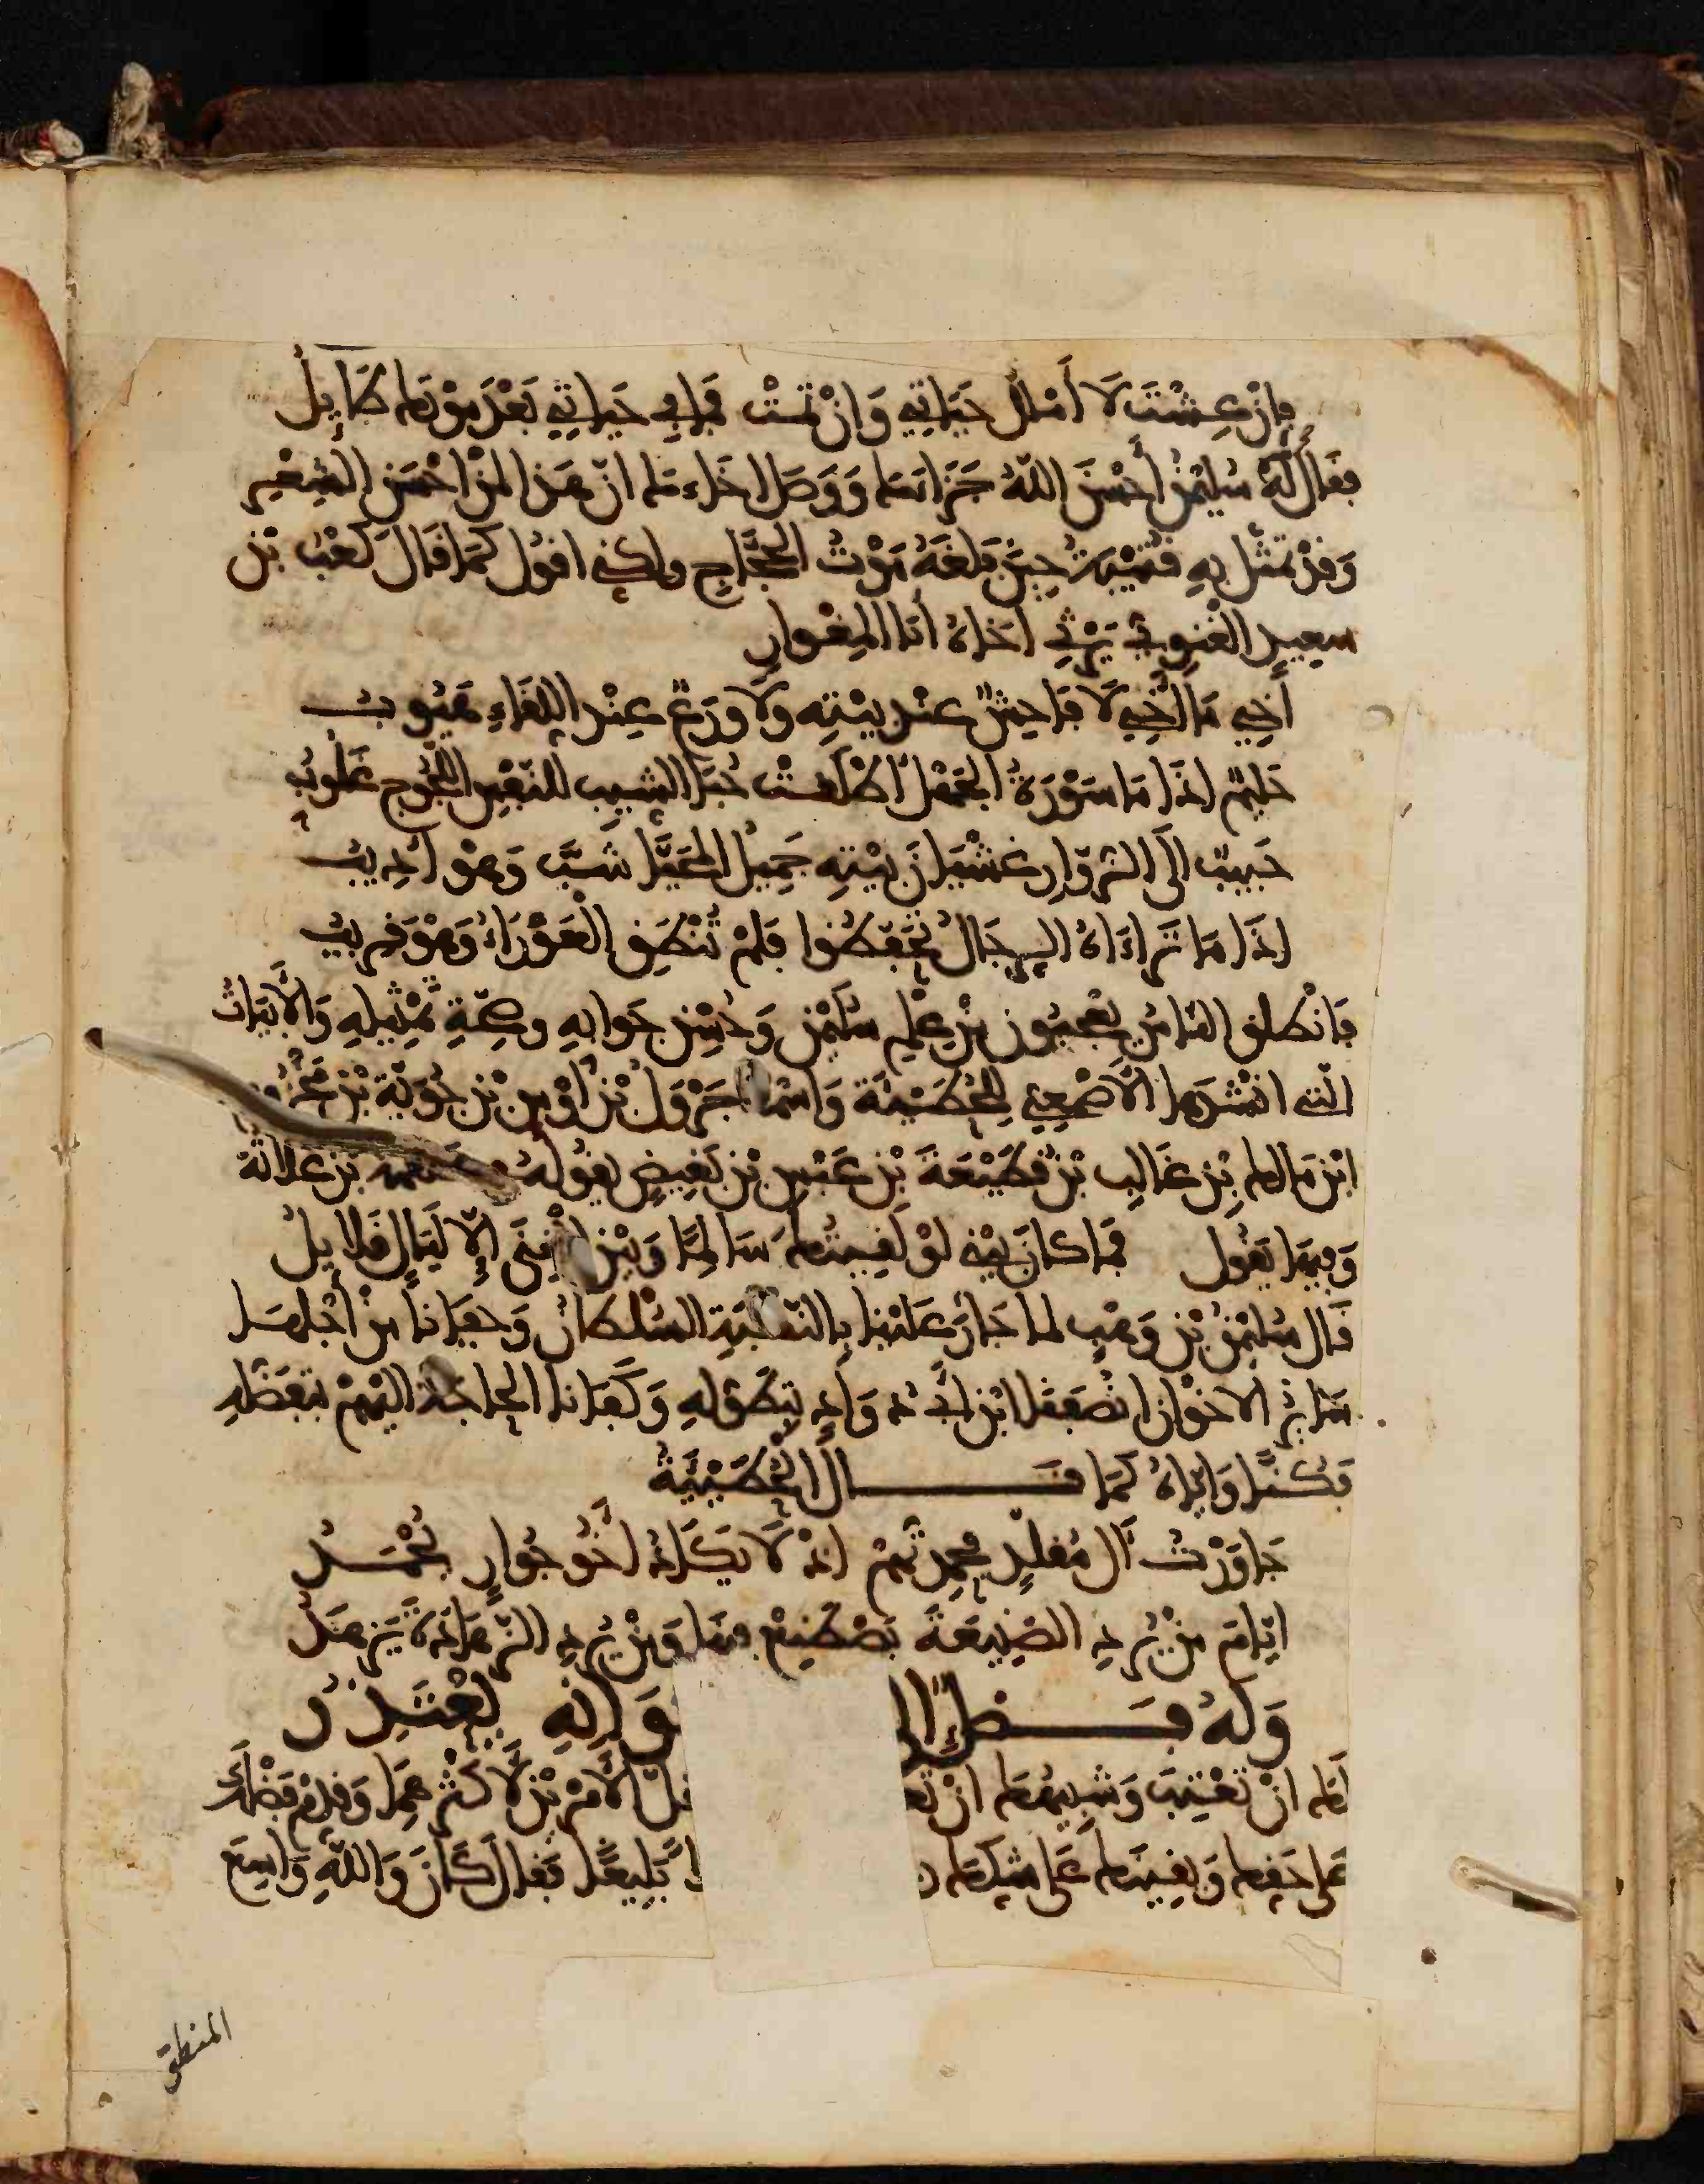 فإن عشت لا أملل حياتي وإن تمت فما في حياتي بعد موتك طايل
فقال له سليمن أحسن الله جزاءك ووصل اخاءك ان هذا لمن احسن الشعر
وقد تمثل به قتيبة حين بلغه موت الحجاج ولكني اقول كما قال كعب بن
سعيد الغنوي يرثي اخاه أبا المغوار
أخي ما أخي لا فاحش عند بيته ولا ورع عند اللقاء هيوب
حليم اذا ما سورة الجهل اطلقت حبا الشيب للنفس اللجوج غلوب
حبيب الى الزوار غشيان بيته جميل المحيا شب وهو اديب
اذا ما تراءاه الرجال تحفظوا فلم تنطق العوراء وهو قريب
فانطلق الناس يعجبون من علم سليمن وحسن جوابه وصحة تمثيله والأبيات
التي انشدها الأصمعي للحطيئة واسمه جرول بن اوس بن جؤية بن مخزوم
ابن مالك بن غالب بن قطيعة بن عبس بن بغيض يقوله بن علاثة
وفيها يقول فما كان بيني لو لقيتك سالما وبين الغنى إلا ليال قلايل
قال سليمن بن وهب لما جار علينا بالنكبة السلطان وجفانا من أجلها
الاخوان انصفنا ابن أبي دواد بتطوله وكفانا الحاجة اليهم بتفضله
فكنا واياه كما قال الحطيئة
جاورت آل مقلد فحمدتهم إذ لا يكاد أخو جوار يحمد
ايام من يرد الصنيعة يصطنع فينا ومن يرد الزهادة يزهد
وله فصل إلى وانه يعتذر
لك ان تعتب وشيمتك ان الأمر بن لأكثر هما وقدم فضلك
على حقك ويقينك على شكك بليغا فقال كان والله واسع
المنطق